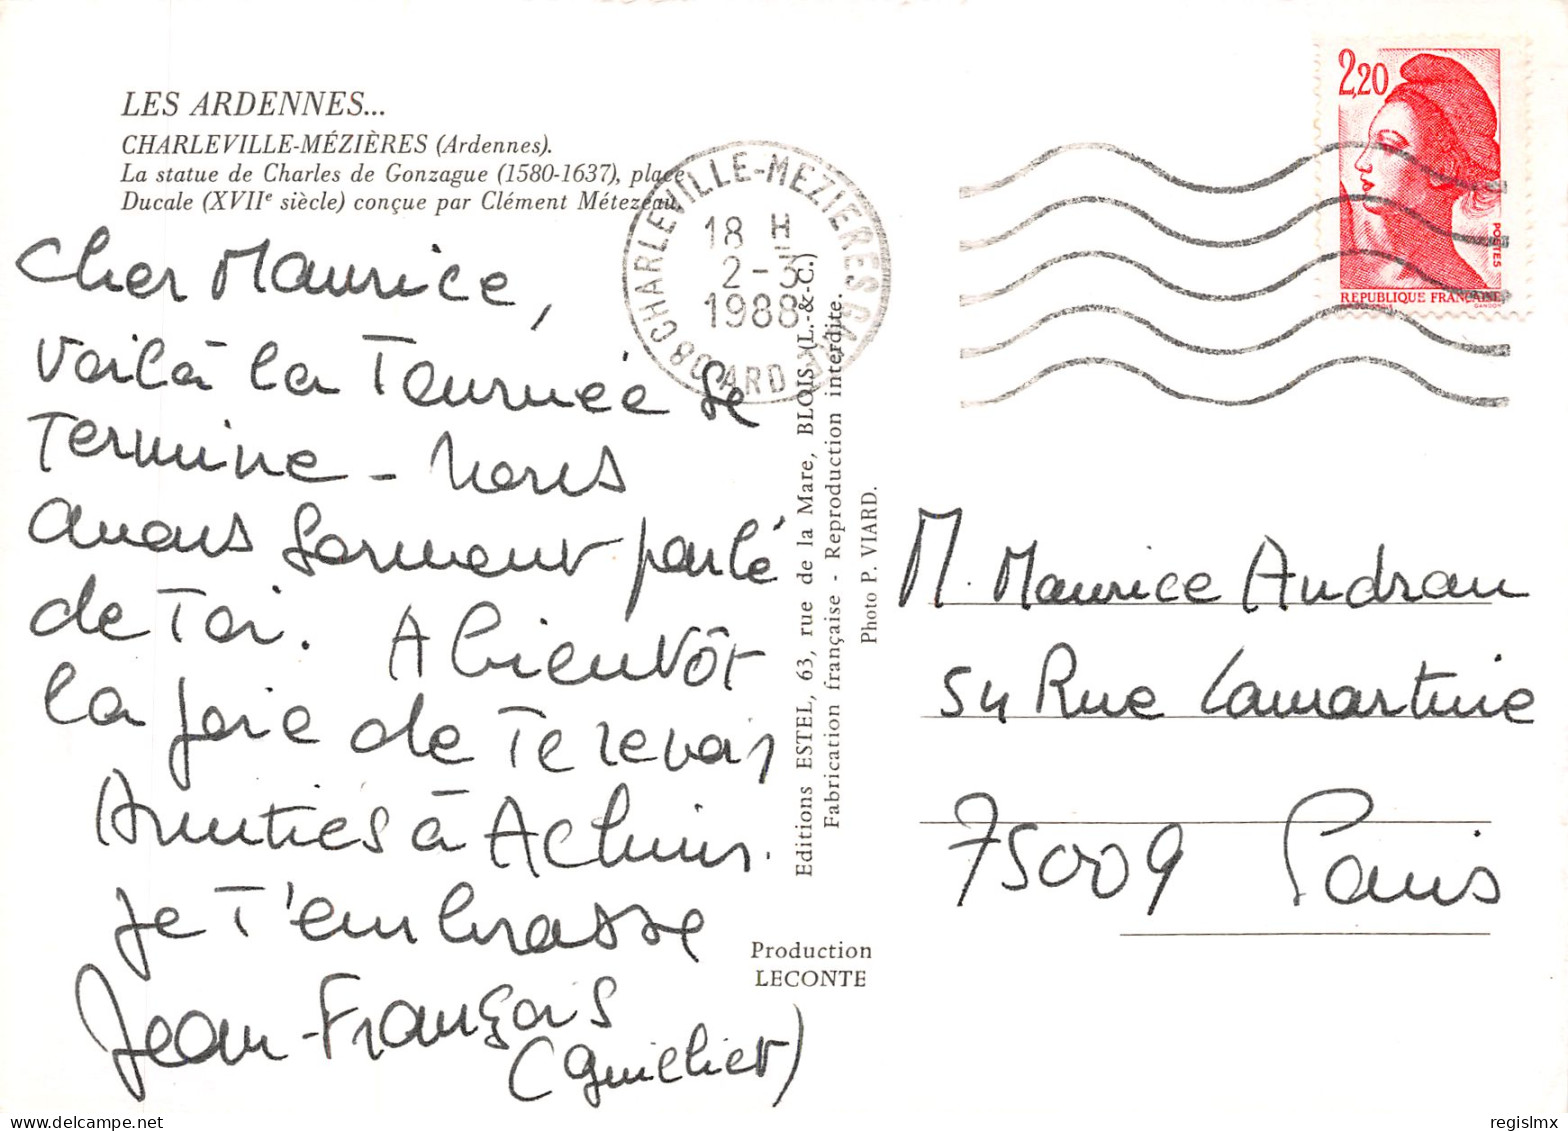 LES ARDENNES...
CHARLEVILLE-MÉZIÈRES (Ardennes).
La statue de Charles de Gonzague (1580-1637), place
Ducale (XVIIe siècle) conçue par Clément Métezeau.
Cher Maurice,
voilà la Tournée se
Termine - Nous
avons souvent parlé
de Toi. A bientôt
la joie de Te revoir
Amitiés à Achim.
Je T'embrasse
Jean-François
(Guilliet)
CHARLEVILLE-MEZIERES GARE
08 ARDENNES
18 H
2-3
1988
Editions ESTEL, 63, rue de la Mare, BLOIS (L.-&-C.)
Fabrication française - Reproduction interdite.
Photo P. VIARD.
Production
LECONTE
2,20
POSTES
REPUBLIQUE FRANÇAISE
GANDON
M. Maurice Audran
54 Rue Lamartine
75009 Paris
regislmx